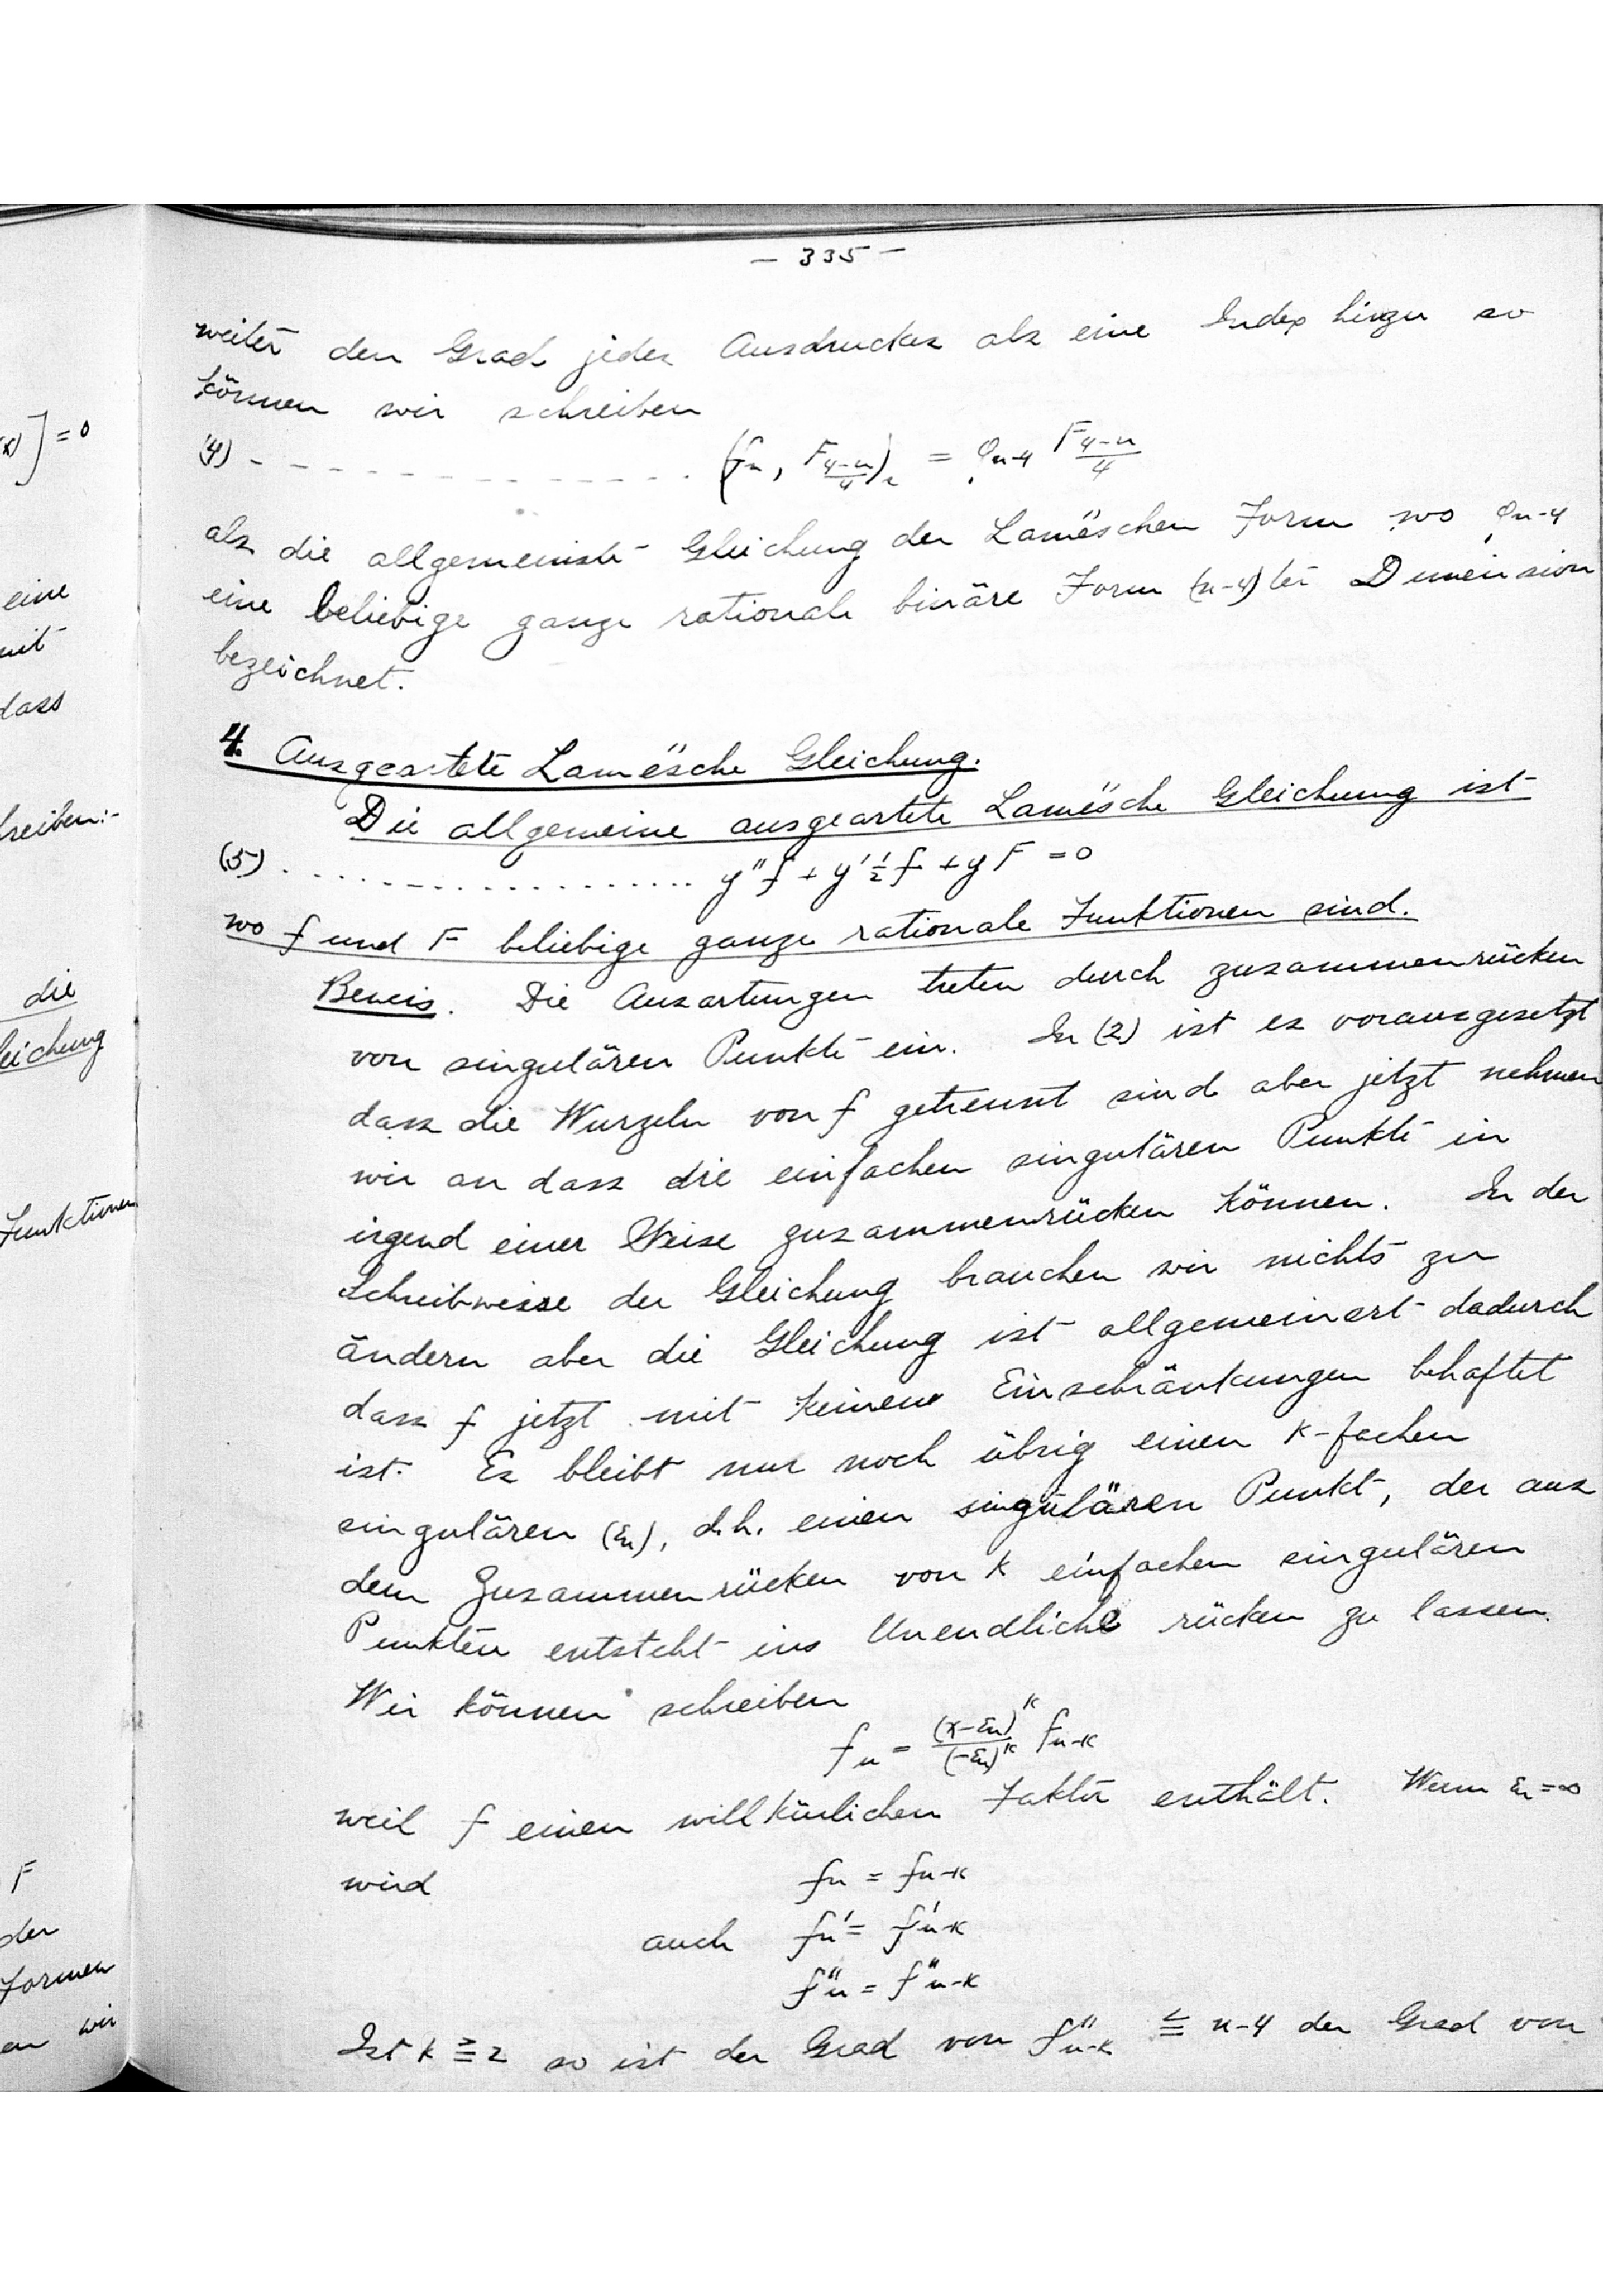 – 335 –
weiter den Grad jedes Ausdruckes als eine Index hinzu so
können wir schreiben
(4) - - - - - - - - - - - - - (fn, F(4-n)/4)2 = φn-4 F(4-n)/4
als die allgemeinste Gleichung der Lamé'schen Form wo φn-4
eine beliebige ganze rationale binäre Form (n-4)ter Dimension
bezeichnet.
4. Ausgeartete Lamé'sche Gleichung.
Die allgemeine ausgeartete Lamé'sche Gleichung ist
(5) . . . . . . . . . . . . . . . . . . y''f + y' ½f' + yF = 0
wo f und F beliebige ganze rationale Funktionen sind.
Beweis. Die Ausartungen treten durch zusammenrücken
von singulären Punkte ein. In (2) ist es vorausgesetzt
dass die Wurzeln von f getrennt sind aber jetzt nehmen
wir an dass die einfachen singulären Punkte in
irgend einer Weise zusammenrücken können. In der
Schreibweise der Gleichung brauchen wir nichts zu
ändern aber die Gleichung ist allgemeinert dadurch
dass f jetzt mit keinen Einschränkungen behaftet
ist. Es bleibt nur noch übrig einen k-fachen
singulären (εn), d.h. einen singulären Punkt, der aus
dem Zusammenrücken von k einfachen singulären
Punkten entsteht ins Unendliche rücken zu lassen.
Wir können schreiben
fn = (x-εn)^k/(-εn)^k fn-k
weil f einen willkürlichen Faktor enthält. Wenn εn=∞
wird fn = fn-k
auch fn' = f'n-k
f''n = f''n-k
Ist k ≧ 2 so ist der Grad von f''n-k ≦ n-4 der Grad von
(x)] = 0
eine
mit
dass
hreiben:-
die
leichung
Funktionen
F
der
Formen
en wir